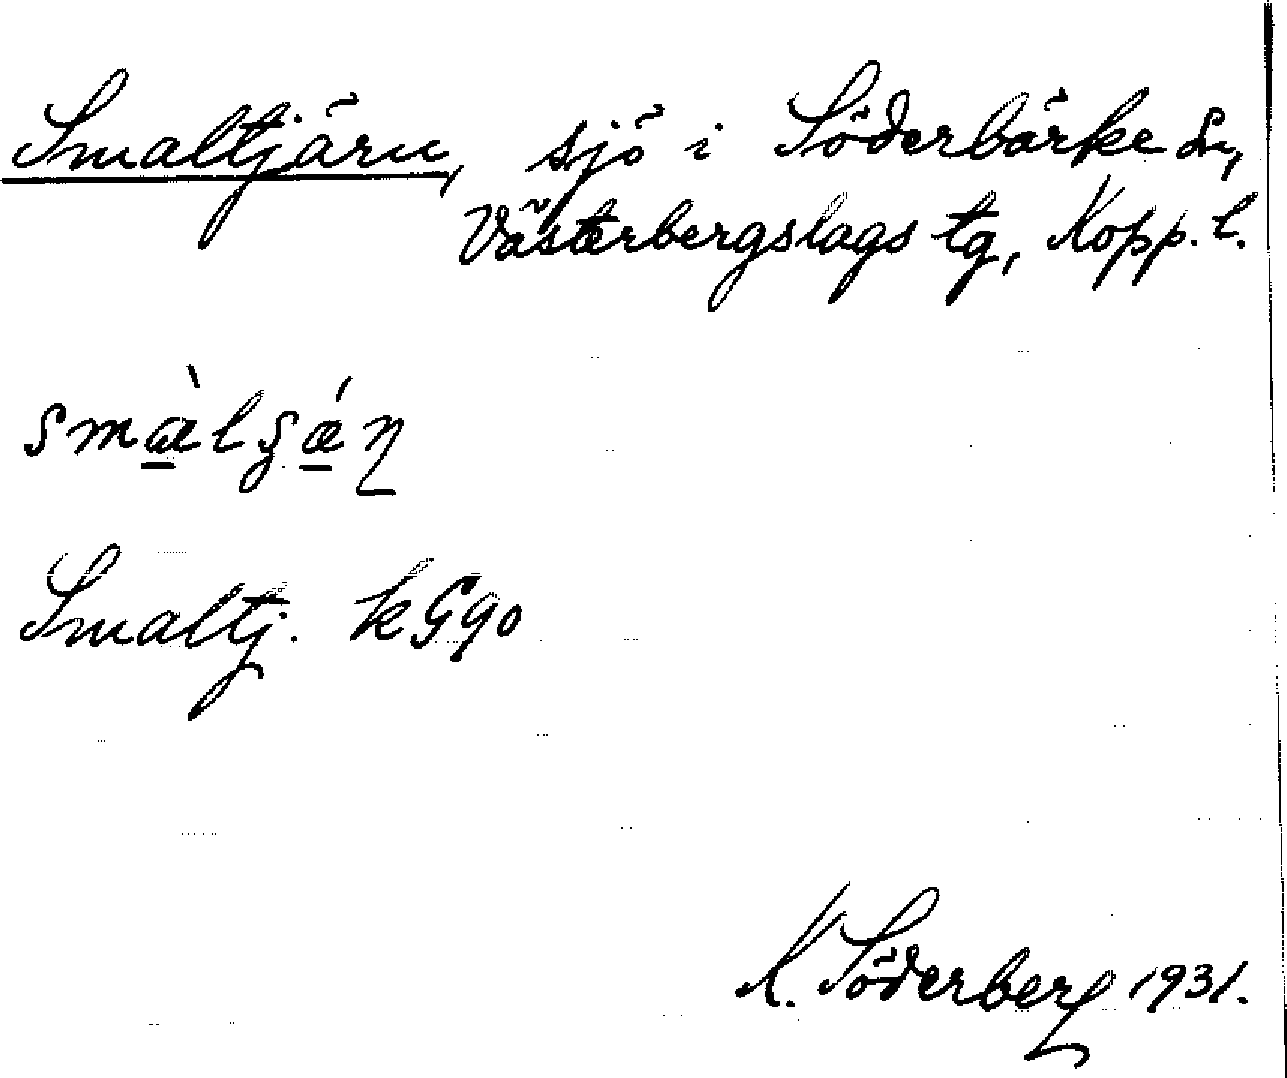 Smaltjärn, sjö i Söderbärke sn,
Västerbergslags tg, Kopp. l.
smæ̀lʂǽɳ
Smaltj. kG90
K. Söderberg 1931.